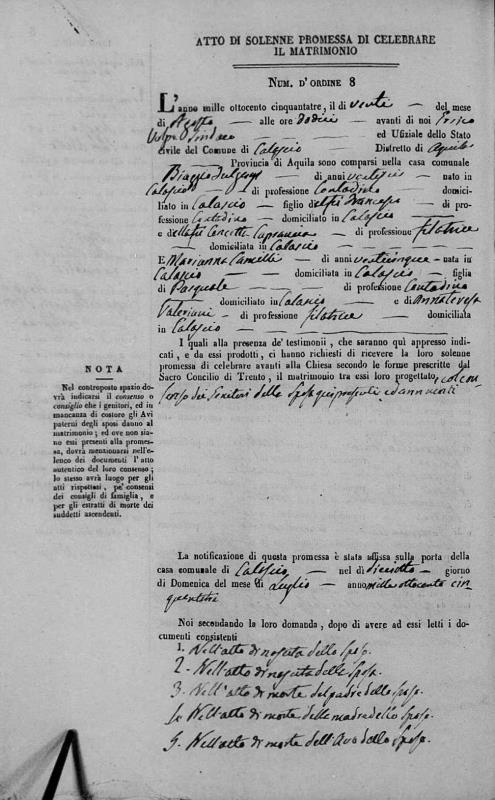 ATTO DI SOLENNE PROMESSA DI CELEBRARE
IL MATRIMONIO
NUM. D'ORDINE 8
L'anno mille ottocento cinquantatre, il dì venti — del mese
di Agosto — alle ore dodici — avanti di noi Errico
Volpe Sindaco — ed Ufiziale dello Stato
civile del Comune di Calascio — Distretto di Aquila
— Provincia di Aquila sono comparsi nella casa comunale
Biagio — di anni ventisei — nato in
Calascio — di professione Contadino — domici-
liato in Calascio — figlio del fu Francesco — di pro-
fessione Contadino — domiciliato in Calascio —
e della fu Concetta — di professione filatrice
— domiciliata in Calascio —
E Marianna Camilli — di anni venticinque — nata in
Calascio — domiciliata in Calascio — figlia
di Pasquale — di professione Contadino
— domiciliato in Calascio — e di Annateresa
Valeriani — di professione filatrice — domiciliata
in Calascio —
I quali alla presenza de' testimonii, che saranno quì appresso indicati,
cati, e da essi prodotti, ci hanno richiesti di ricevere la loro solenne
promessa di celebrare avanti alla Chiesa secondo le forme prescritte dal
Sacro Concilio di Trento, il matrimonio tra essi loro progettato, col con
corso dei Genitori della Sposa qui presenti, ed annuenti
NOTA
Nel controposto spazio do-
vrà indicarsi il consenso o
consiglio che i genitori, ed in
mancanza di costoro gli Avi
paterni degli sposi danno al
matrimonio; ed ove non sia-
no essi presenti alla promes-
sa, dovrà menzionarsi nell'e-
lenco dei documenti l'atto
autentico del loro consenso;
lo stesso avrà luogo per gli
atti rispettosi, pe' consensi
dei consigli di famiglia, e
per gli estratti di morte dei
suddetti ascendenti.
La notificazione di questa promessa è stata affissa sulla porta della
casa comunale di Calascio — nel dì diciotto — giorno
di Domenica del mese di Luglio — anno mille ottocento cin
quantatre
Noi secondando la loro domanda, dopo di avere ad essi letti i do-
cumenti consistenti
1. Nell'atto di nascita dello sposo.
2. Nell'atto di nascita della sposa.
3. Nell'atto di morte del padre dello sposo.
4. Nell'atto di morte della madre dello sposo.
5. Nell'atto di morte dell'Avo dello sposo.